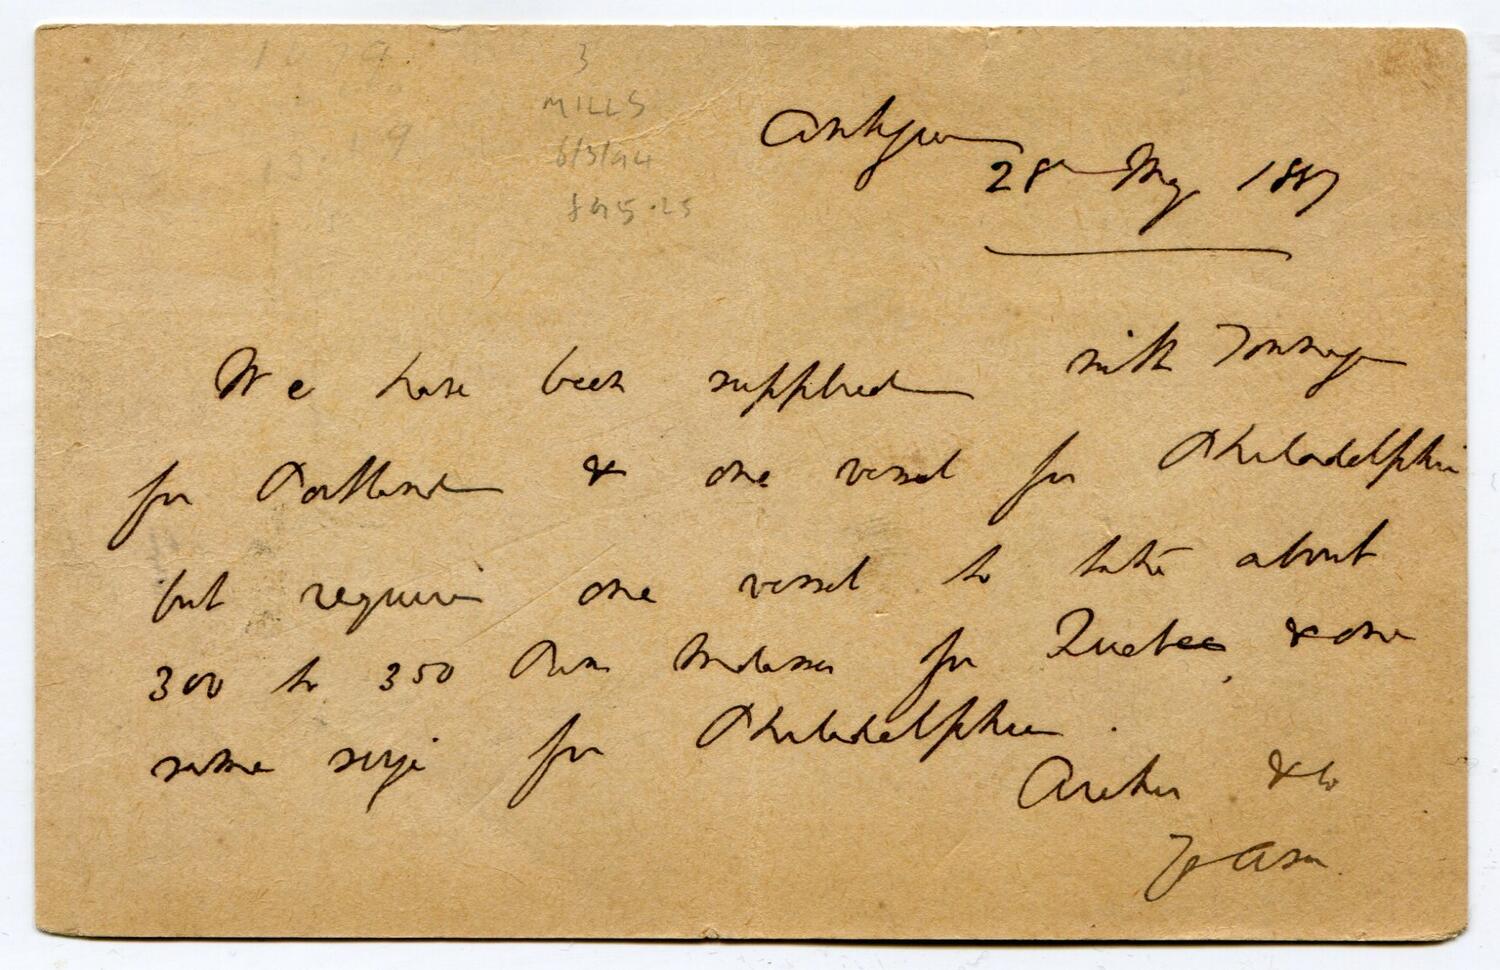 3
MILLS
6/3/94
Antigua
28 May 1887
We have been supplied with Tonnage
for Portland & one vessel for Philadelphia
but require one vessel to take about
300 to 350 Puns Molasses for Quebec & one
same size for Philadelphia.
Archer & Co